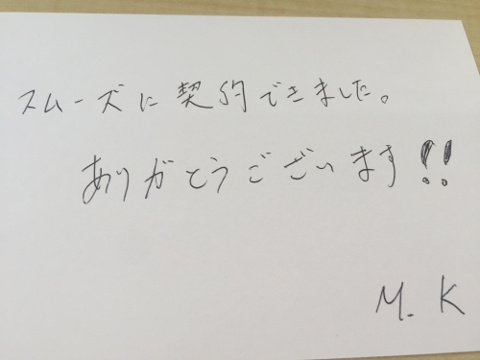 スムーズに契約できました。
ありがとうございます!!
M. K